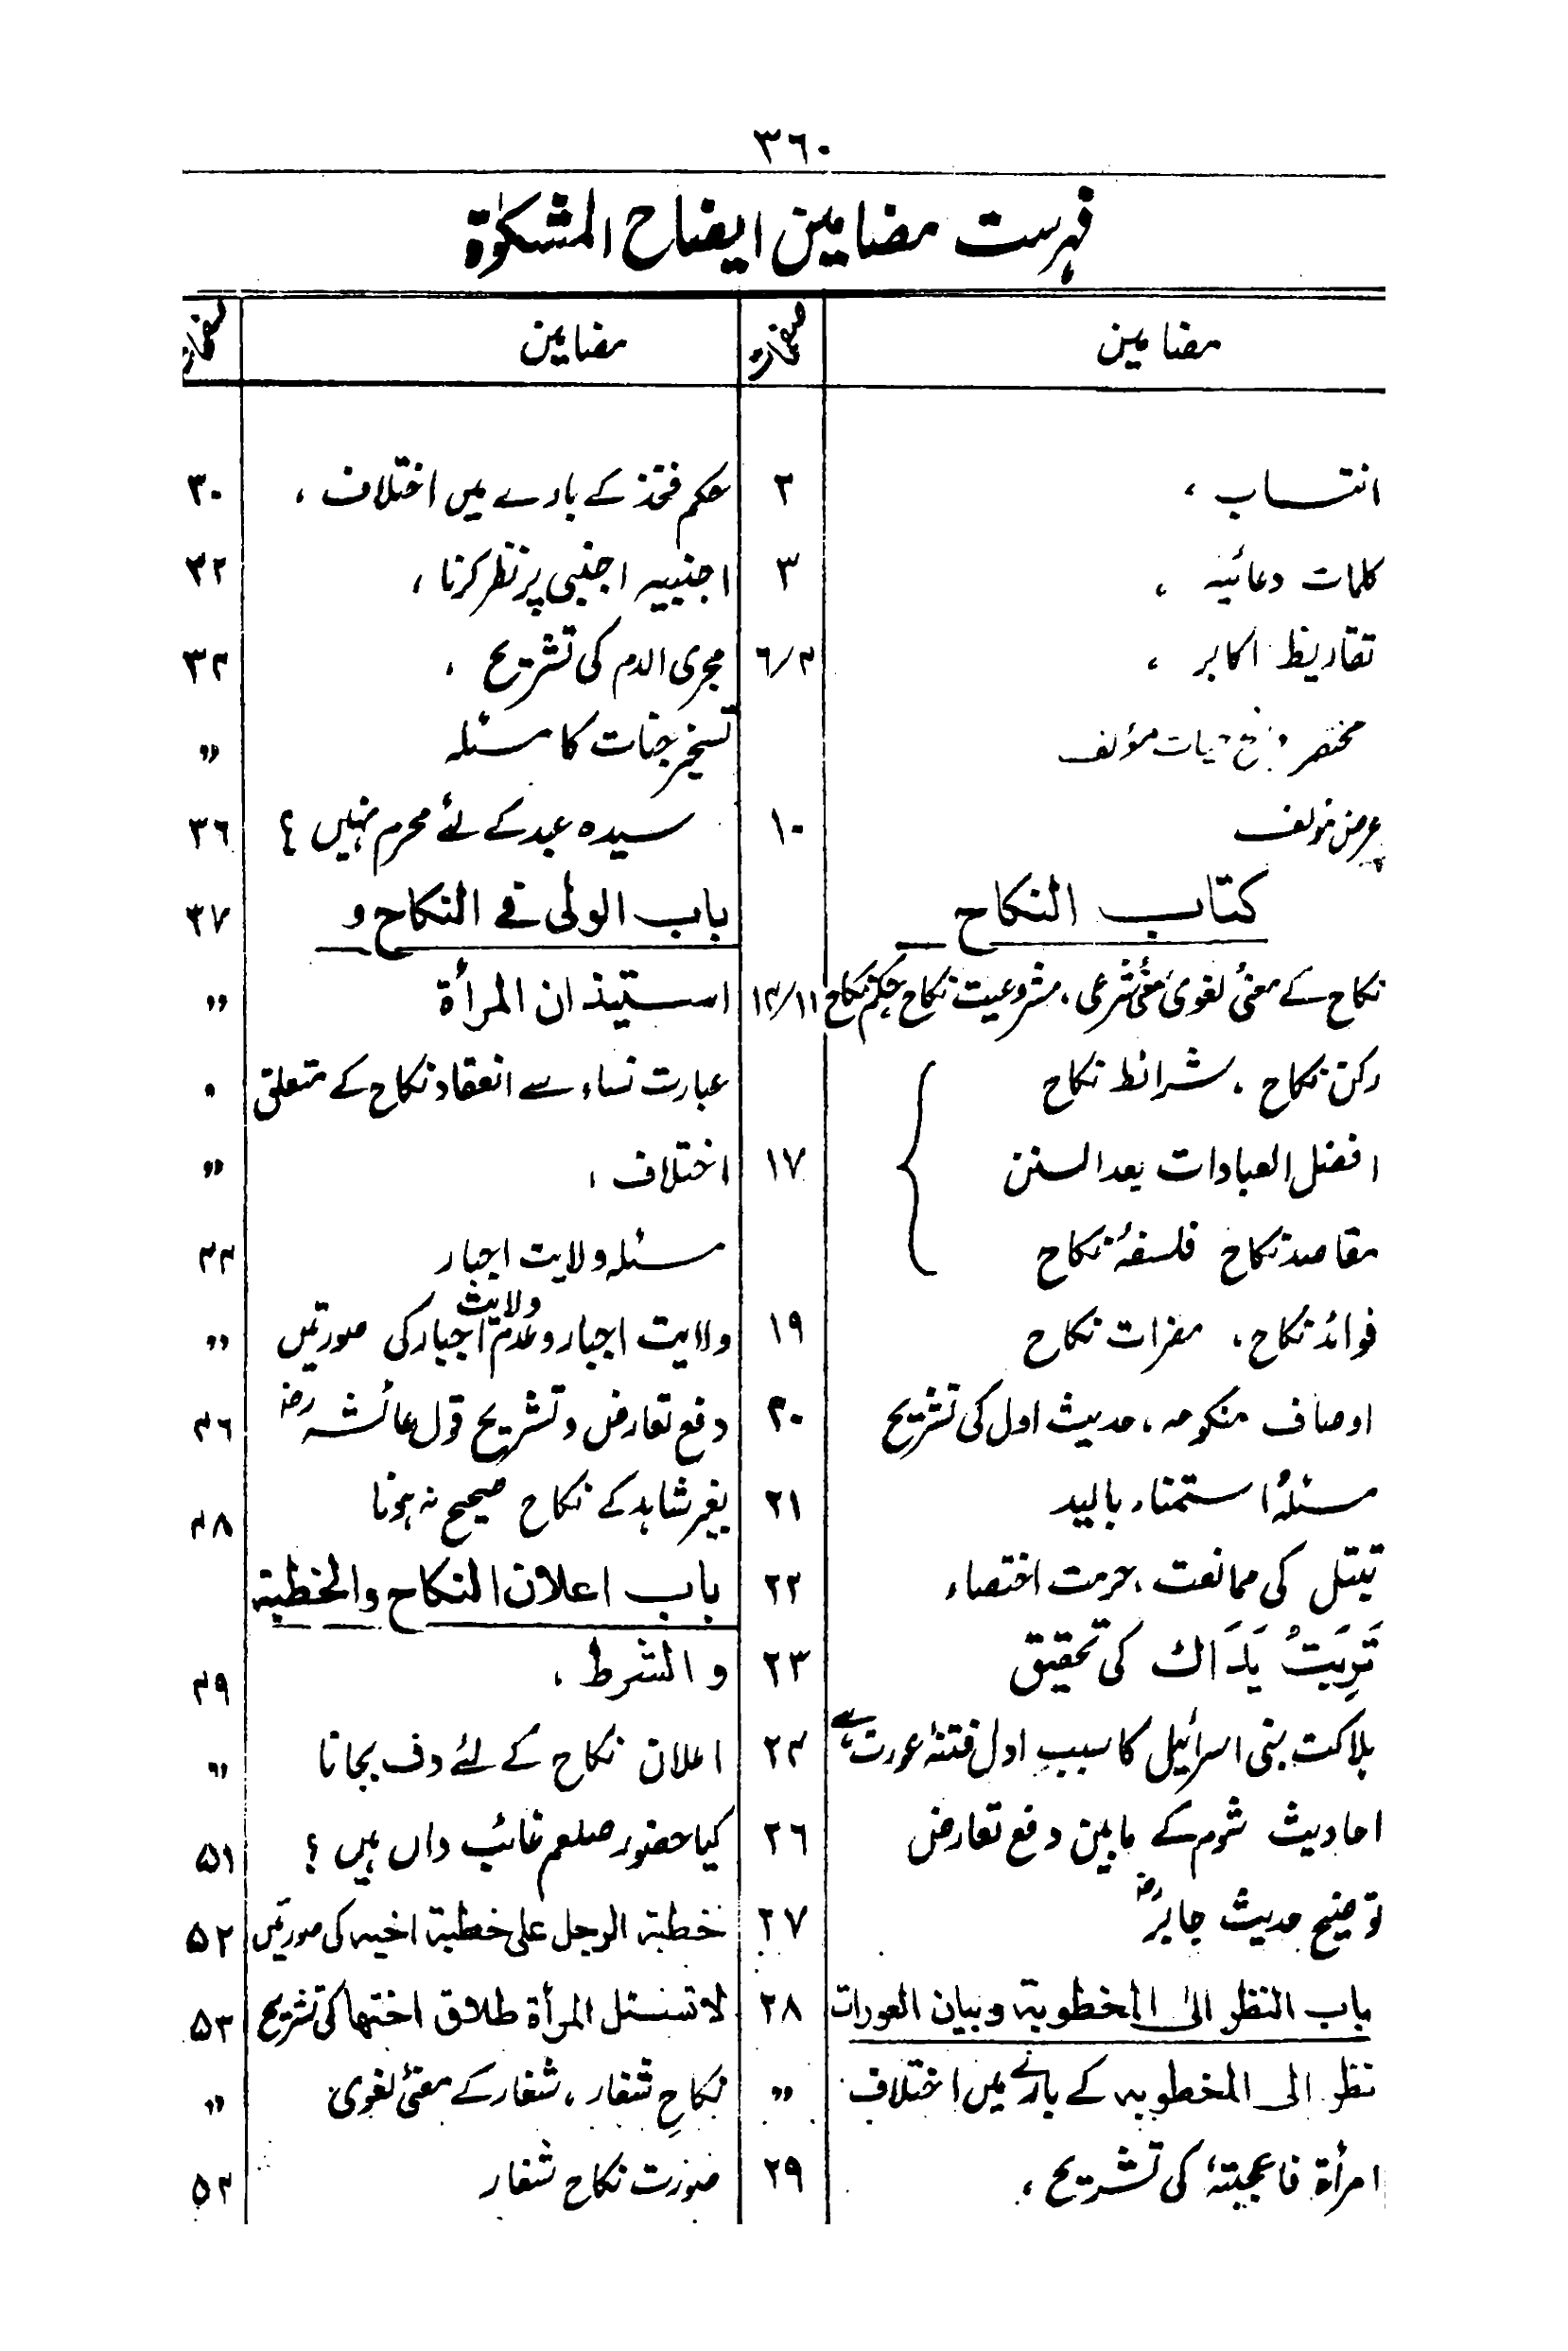 ۳٦۰
فہرست مضامین ایضاح المشکوٰۃ
مضامین صفحات
انتساب ، ۲
کلمات دعائیہ ، ۳
تقاریظ اکابر ، ٦/۴
مختصر حیات مؤلف
عرض مؤلف ۱۰
کتاب النکاح
نکاح کے معنیٔ لغوی معنیٔ شرعی ، مشروعیت نکاح حکم نکاح ۱۴/۱۱
رکن نکاح ، شرائط نکاح
افضل العبادات بعد السنن ۱۷
مقاصد نکاح فلسفۂ نکاح
فوائد نکاح ، مضرات نکاح ۱۹
اوصاف منکوحہ ، حدیث اول کی تشریح ۲۰
مسئلۂ استمناء بالید ۲۱
تبتل کی ممانعت ، حرمت اختصاء ۲۲
تَرِبَتْ یَدَاك کی تحقیق ۲۳
ہلاکت بنی اسرائیل کا سببِ اول فتنۂ عورت ہے ۲۴
احادیث شوم کے مابین دفع تعارض ۲٦
توضیح حدیث جابرؓ ۲۷
باب النظر الیٰ المخطوبۃ وبیان العورات ۲۸
نظر الی المخطوبہ کے بارے میں اختلاف "
امرأۃ فاعجبتہٗ کی تشریح ، ۲۹
مضامین صفحات
حکم فخذ کے بارے میں اختلاف ، ۳۰
اجنبیہ اجنبی پر نظر کرنا ، ۳۲
مجری الدم کی تشریح ، ۳۴
تسخیر جنات کا مسئلہ "
سیدہ عبد کے لئے محرم نہیں ؟ ۳٦
باب الولی فے النکاح و ۳۷
استیذان المرأۃ "
عبارت نساء سے انعقاد نکاح کے متعلق
اختلاف ، "
مسئلہ ولایت اجبار ۴۴
ولایت اجبار و عدم ولایت اجبار کی صورتیں "
دفع تعارض و تشریح قول عائشہؓ ۴٦
بغیر شاہد کے نکاح صحیح نہ ہونا ۴۸
باب اعلان النکاح والخطبۃ
والشرط ، ۴۹
اعلان نکاح کے لئے دف بجانا "
کیا حضور صلعم غائب داں ہیں ؟ ۵۱
خطبۃ الرجل علی خطبۃ اخیہ کی صورتیں ۵۲
لا تسئل المرأۃ طلاق اختہا کی تشریح ۵۳
نکاحِ شغار ، شغار کے معنیٔ لغوی "
صورت نکاح شغار ۵۴